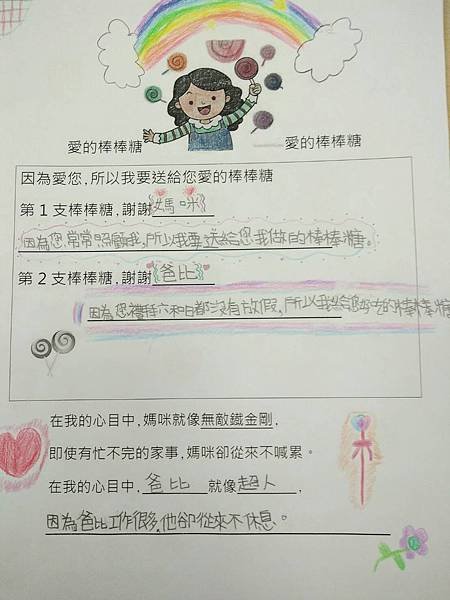 愛的棒棒糖 愛的棒棒糖
因為愛您,所以我要送給您愛的棒棒糖
第 1 支棒棒糖,謝謝媽咪
因為您常常照顧我,所以我要送給您我做的棒棒糖。
第 2 支棒棒糖,謝謝爸比
因為您禮拜六和日都沒有放假,所以我給您好吃的棒棒糖
在我的心目中,媽咪就像無敵鐵金剛,
即使有忙不完的家事,媽咪卻從來不喊累。
在我的心目中,爸比就像超人,
因為爸比工作很多,他卻從來不休息。